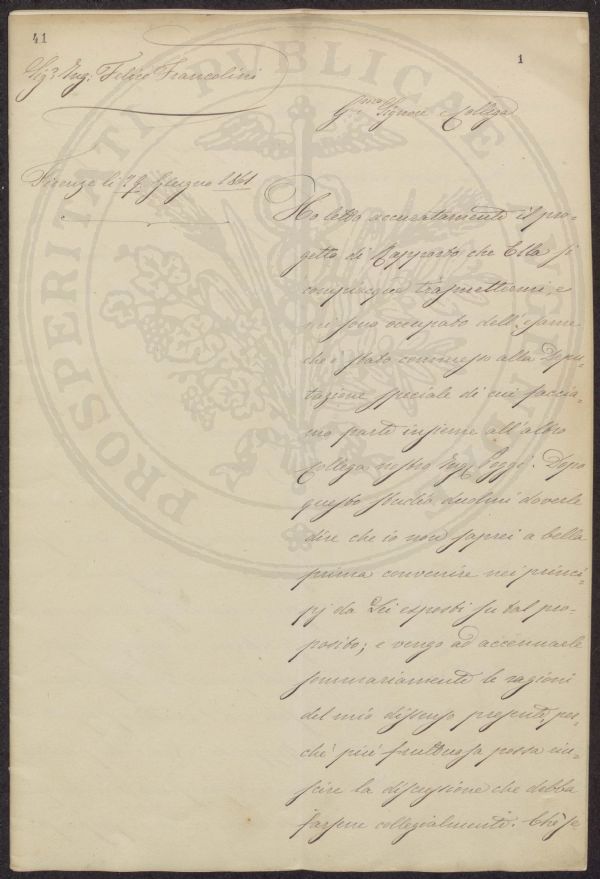 41
1
Sig.r Ing: Felice Francolini
G.mo Signore e Collega
Firenze li 19 Giugno 1861
Ho letto accuratamente il pro-
getto di Rapporto che Ella si
compiacque trasmettermi, e
mi sono occupato dell'esame
che è stato commesso alla Depu-
tazione speciale di cui faccia-
mo parte insieme all'altro
Collega nostro Ing. Poggi. Dopo
questo studio duolmi doverle
dire che io non saprei a bella
prima convenire nei princi-
pj da Lei esposti su tal pro-
posito; e vengo ad accennarle
sommariamente le ragioni
del mio dissenso presente, per-
chè più fruttuosa possa riu-
scire la discussione che debba
farsene collegialmente. Chè se
PROSPERITATI PUBLICAE AUGENDAE